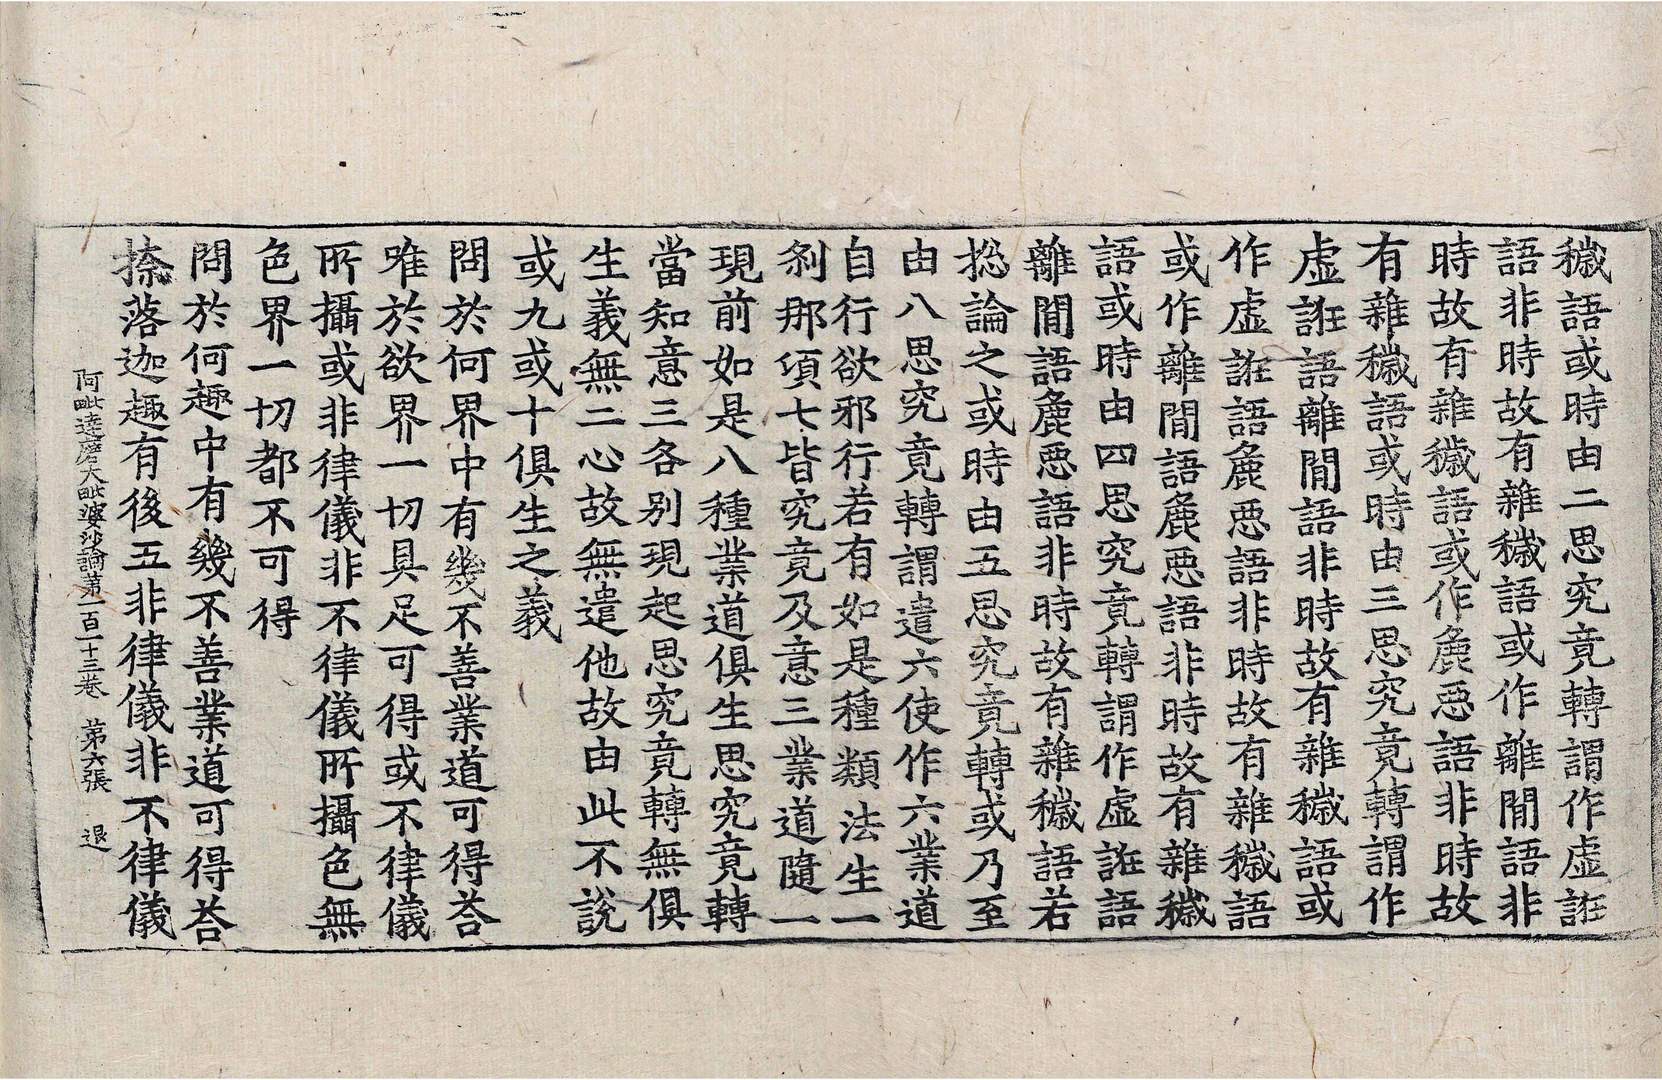 穢語或時由二思究竟轉謂作虛誑
語非時故有雜穢語或作離間語非
時故有雜穢語或作麁惡語非時故
有雜穢語或時由三思究竟轉謂作
虛誑語離間語非時故有雜穢語或
作虛誑語麁惡語非時故有雜穢語
或作離間語麁惡語非時故有雜穢
語或時由四思究竟轉謂作虛誑語
離間語麁惡語非時故有雜穢語若
捴論之或時由五思究竟轉或乃至
由八思究竟轉謂遣六使作六業道
自行欲邪行若有如是種類法生一
剎那頃七皆究竟及意三業道隨一
現前如是八種業道俱生思究竟轉
當知意三各别現起思究竟轉無俱
生義無二心故無遣他故由此不說
或九或十俱生之義
問於何界中有幾不善業道可得荅
唯於欲界一切具足可得或不律儀
所攝或非律儀非不律儀所攝色無
色界一切都不可得
問於何趣中有幾不善業道可得荅
捺落迦趣有後五非律儀非不律儀
阿毗達磨大毗婆沙論苐一百一十三卷　苐六張　退